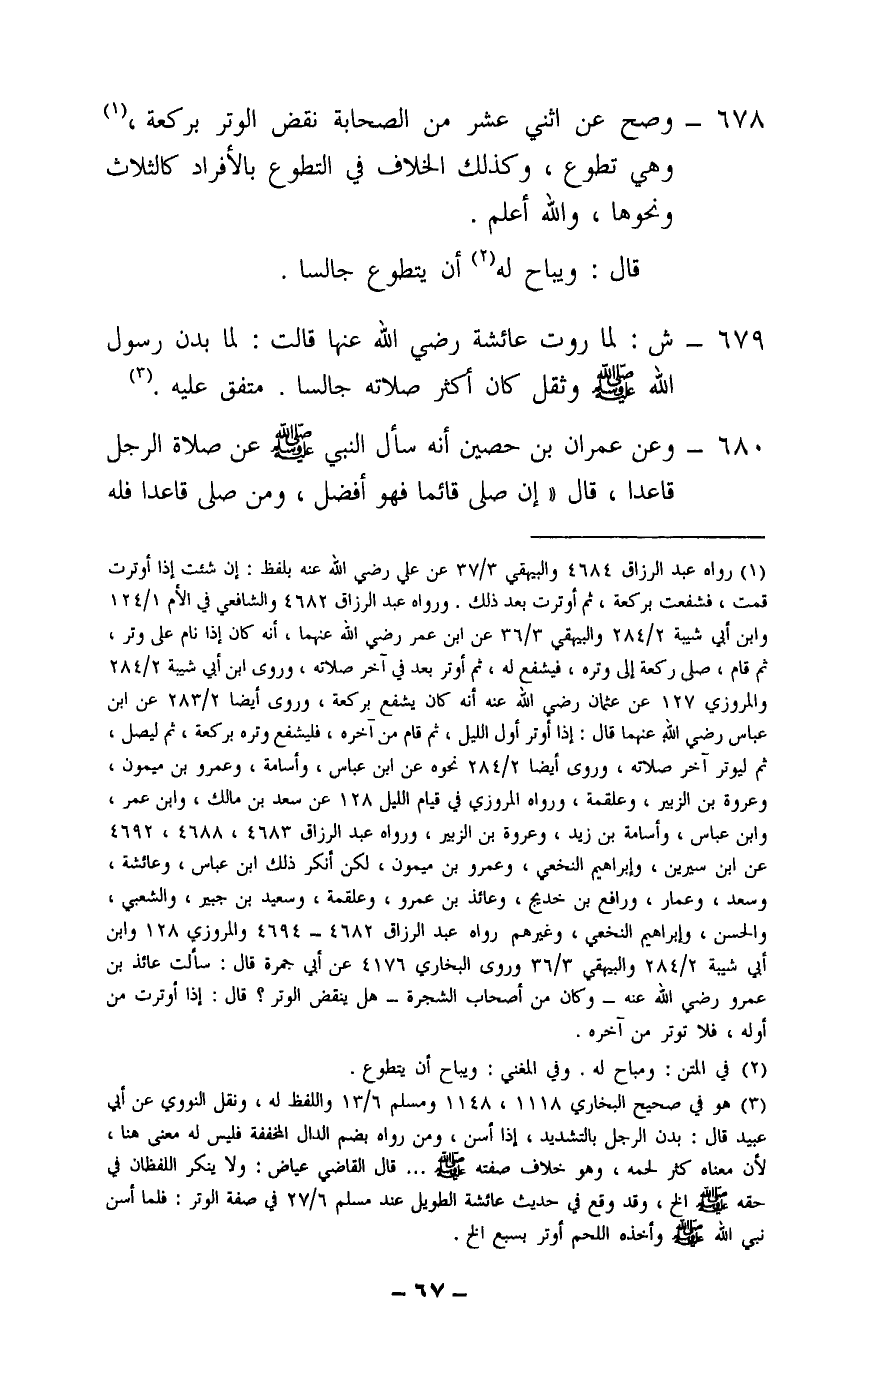 ٦٧٨ – وصح عن اثني عشر من الصحابة نقض الوتر بركعة ،(١)
وهي تطوع ، وكذلك الخلاف في التطوع بالأفراد كالثلاث
ونحوها ، والله أعلم .
قال : ويباح له(٢) أن يتطوع جالسا .
٦٧٩ – ش : لما روت عائشة رضي الله عنها قالت : لما بدن رسول
الله ﷺ وثقل كان أكثر صلاته جالسا . متفق عليه .(٣)
٦٨٠ – وعن عمران بن حصين أنه سأل النبي ﷺ عن صلاة الرجل
قاعدا ، قال « إن صلى قائما فهو أفضل ، ومن صلى قاعدا فله
(١) رواه عبد الرزاق ٤٦٨٤ والبيهقي ٣٧/٣ عن علي رضي الله عنه بلفظ : إن شئت إذا أوترت
قمت ، فشفعت بركعة ، ثم أوترت بعد ذلك . ورواه عبد الرزاق ٤٦٨٢ والشافعي في الأم ١٢٤/١
وابن أبي شيبة ٢٨٤/٢ والبيهقي ٣٦/٣ عن ابن عمر رضي الله عنهما ، أنه كان إذا نام على وتر ،
ثم قام ، صلى ركعة إلى وتره ، فيشفع له ، ثم أوتر بعد في آخر صلاته ، وروى ابن أبي شيبة ٢٨٤/٢
والمروزي ١٢٧ عن عثمان رضي الله عنه أنه كان يشفع بركعة ، وروى أيضا ٢٨٣/٢ عن ابن
عباس رضي الله عنهما قال : إذا أوتر أول الليل ، ثم قام من آخره ، فليشفع وتره بركعة ، ثم ليصل ،
ثم ليوتر آخر صلاته ، وروى أيضا ٢٨٤/٢ نحوه عن ابن عباس ، وأسامة ، وعمرو بن ميمون ،
وعروة بن الزبير ، وعلقمة ، ورواه المروزي في قيام الليل ١٢٨ عن سعد بن مالك ، وابن عمر ،
وابن عباس ، وأسامة بن زيد ، وعروة بن الزبير ، ورواه عبد الرزاق ٤٦٨٣ ، ٤٦٨٨ ، ٤٦٩٢
عن ابن سيرين ، وإبراهيم النخعي ، وعمرو بن ميمون ، لكن أنكر ذلك ابن عباس ، وعائشة ،
وسعد ، وعمار ، ورافع بن خديج ، وعائذ بن عمرو ، وعلقمة ، وسعيد بن جبير ، والشعبي ،
والحسن ، وإبراهيم النخعي ، وغيرهم رواه عبد الرزاق ٤٦٨٢ – ٤٦٩٤ والمروزي ١٢٨ وابن
أبي شيبة ٢٨٤/٢ والبيهقي ٣٦/٣ وروى البخاري ٤١٧٦ عن أبي جمرة قال : سألت عائذ بن
عمرو رضي الله عنه – وكان من أصحاب الشجرة – هل ينقض الوتر ؟ قال : إذا أوترت من
أوله ، فلا توتر من آخره .
(٢) في المتن : ومباح له . وفي المغني : ويباح أن يتطوع .
(٣) هو في صحيح البخاري ١١١٨ ، ١١٤٨ ومسلم ١٣/٦ واللفظ له ، ونقل النووي عن أبي
عبيد قال : بدن الرجل بالتشديد ، إذا أسن ، ومن رواه بضم الدال المخففة فليس له معنى هنا ،
لأن معناه كثر لحمه ، وهو خلاف صفته ﷺ ... قال القاضي عياض : ولا ينكر اللفظان في
حقه ﷺ الخ ، وقد وقع في حديث عائشة الطويل عند مسلم ٢٧/٦ في صفة الوتر : فلما أسن
نبي الله ﷺ وأخذه اللحم أوتر بسبع الخ .
– ٦٧ –